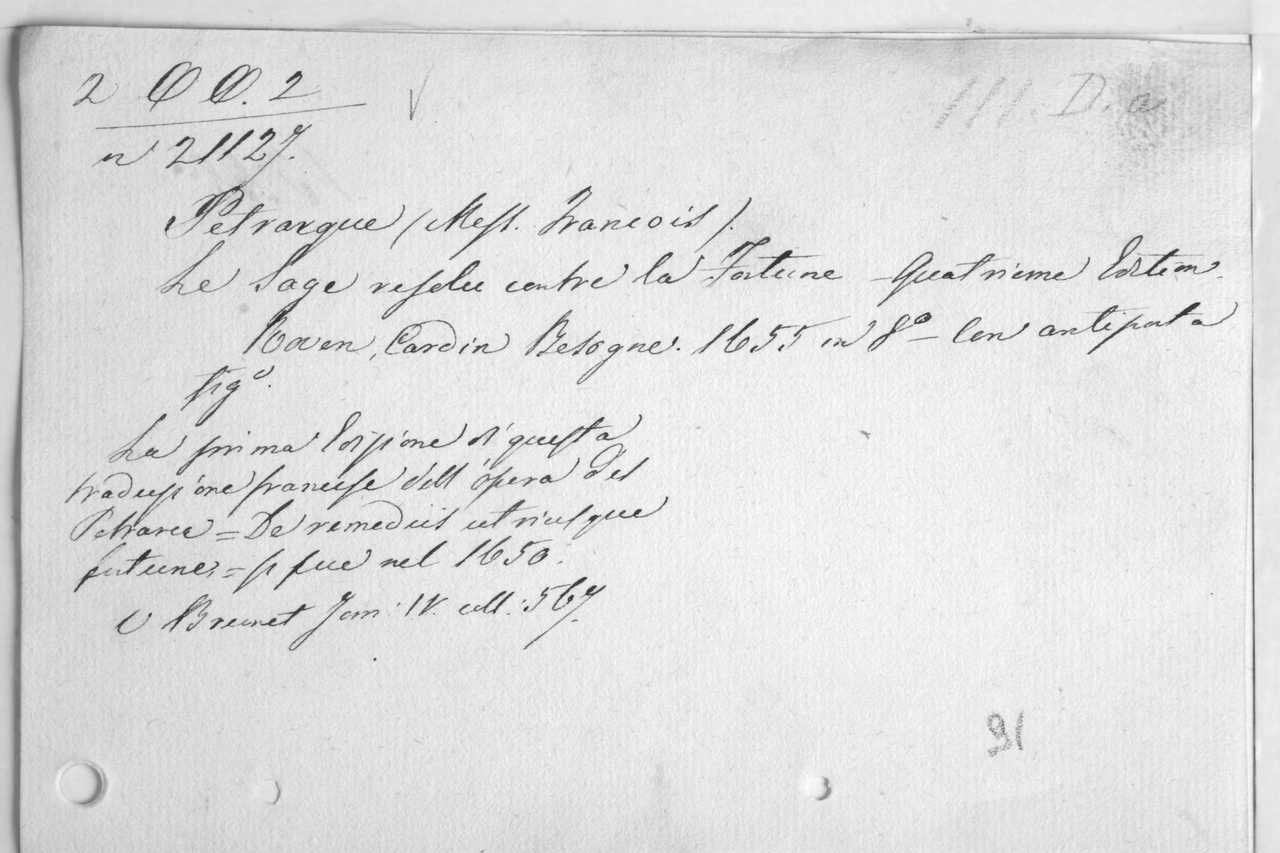 2 QQ. 2
III. D. a
n 21127.
Petrarque (Mess. Francois).
Le Sage resolu contre la Fortune - Quatrieme Edition.
Rouen, Cardin Besogne. 1655 in 8º - Con antiporta
figª.
La prima Edizione di questa
traduzione francese dell'opera del
Petrarca = De remediis utriusque
fortune, = si fue nel 1650.
V Brunet Tom: IV. coll: 567.
91